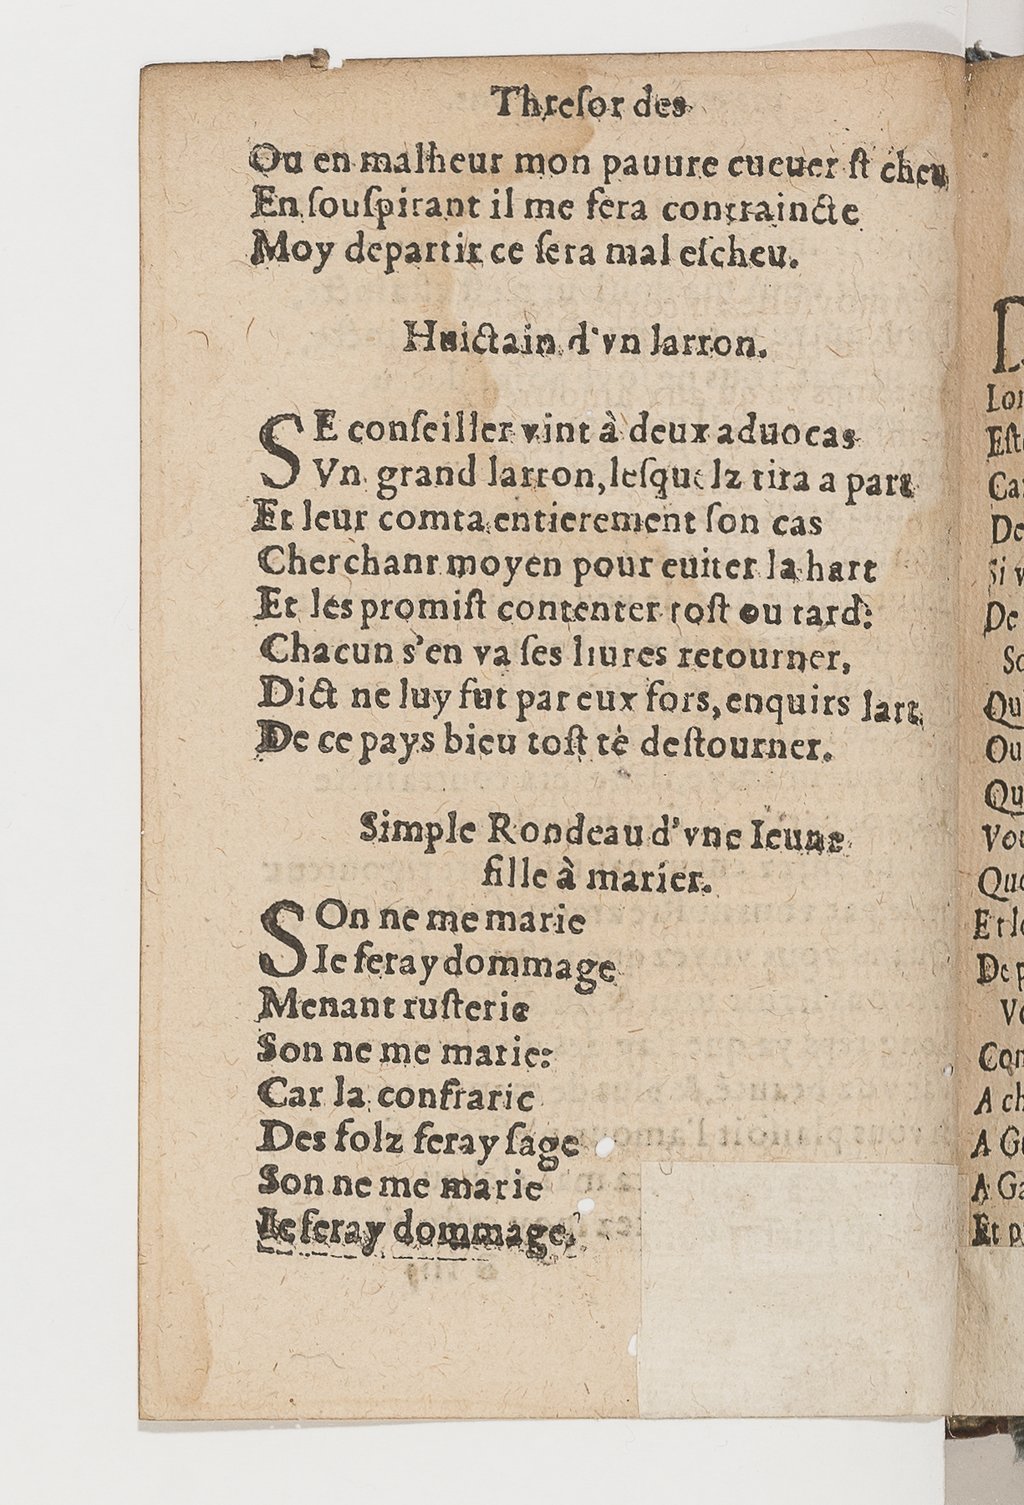 Threſor des
Ou en malheur mon pauure cueuer ſt cheu
En ſouſpirant il me ſera contraincte
Moy departir ce ſera mal eſcheu.
Huictain d'vn larron.
SE conſeiller vint à deux aduocas
Vn grand larron, leſquelz tira a part
Et leur comta entierement ſon cas
Cherchant moyen pour euiter la hart
Et les promiſt contenter toſt ou tard:
Chacun s'en va ſes liures retourner,
Dict ne luy fut par eux fors, enquirs lart,
De ce pays bieu toſt tè deſtourner.
Simple Rondeau d'vne Ieune
fille à marier.
SOn ne me marie
Ie feray dommage
Menant ruſterie
Son ne me marie:
Car la confrarie
Des folz feray ſage
Son ne me marie
Ie feray dommage.
Lor
Eſt
Car
De
Si v
De
So
Qu
Ou
Qu
Vou
Que
Et le
De p
Vo
Con
A ch
A Ge
A Ga
Et p